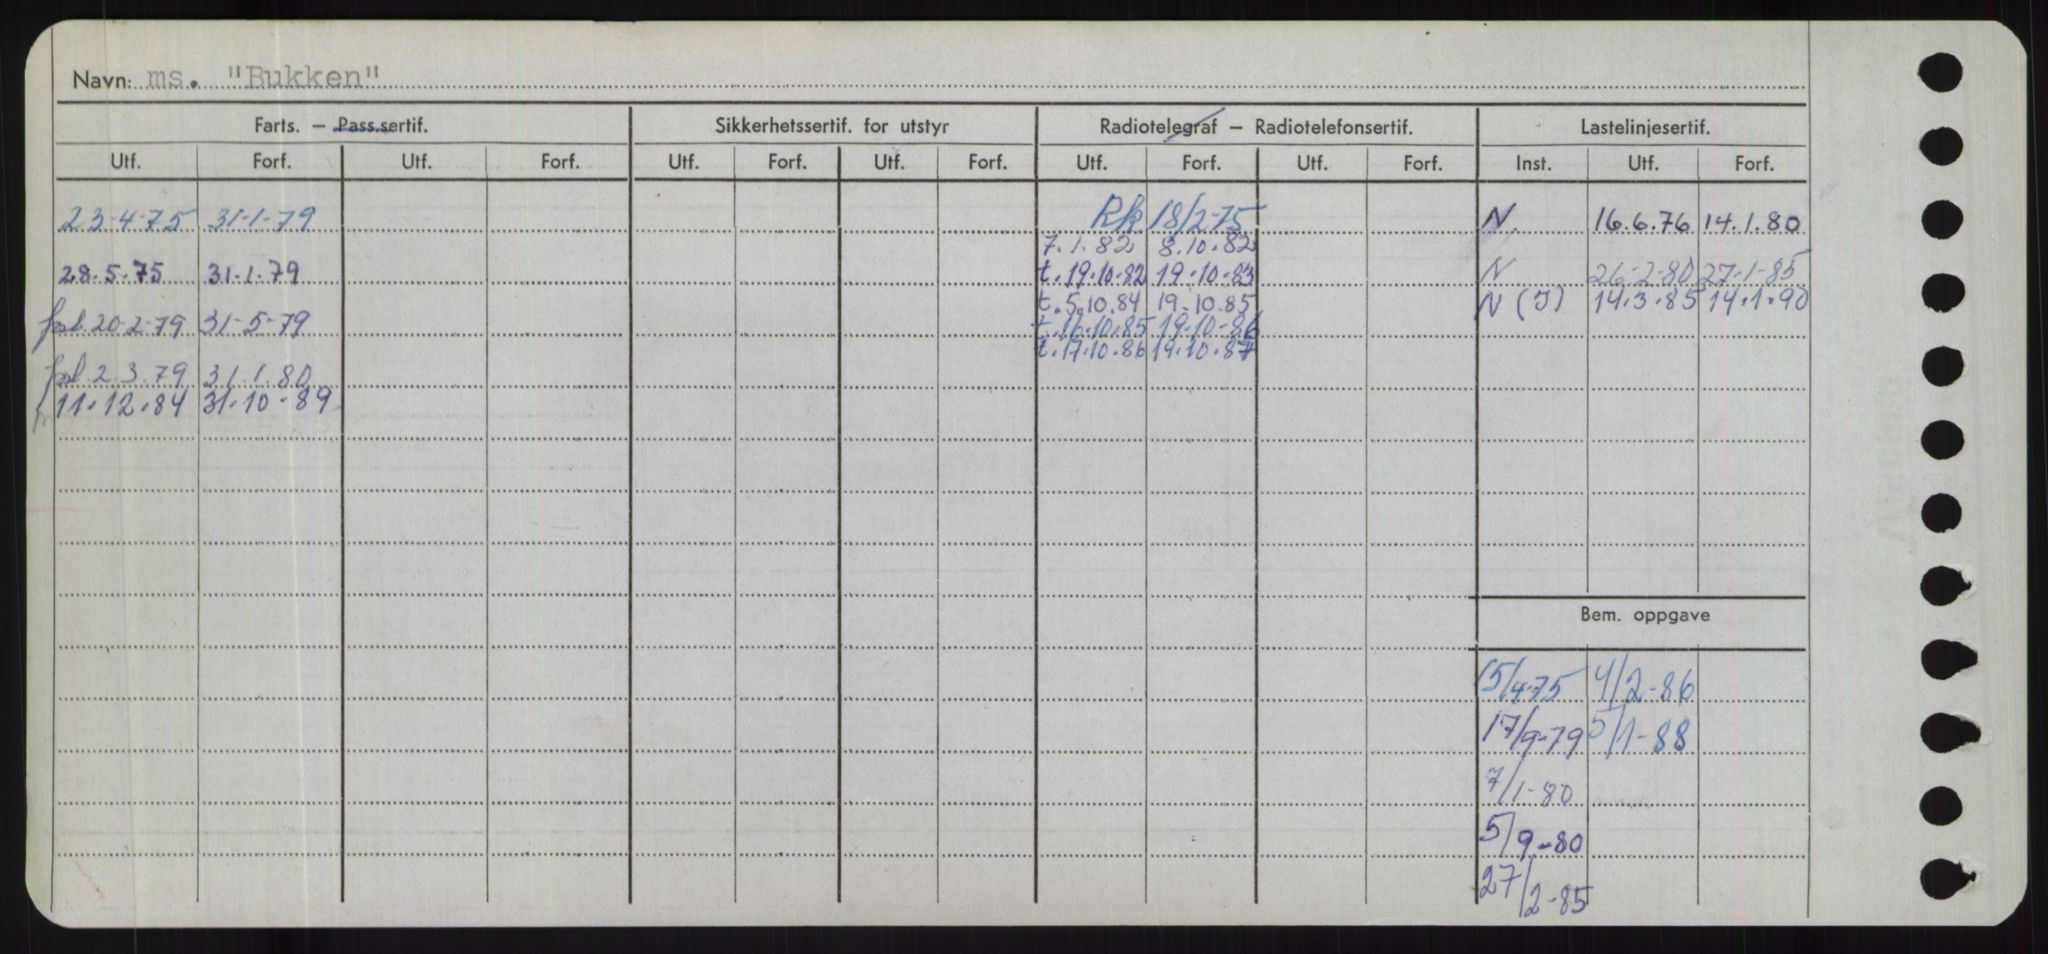 Navn: ms. "Bukken"
Farts. – Pass.sertif. Sikkerhetssertif. for utstyr Radiotelegraf – Radiotelefonsertif. Lastelinjesertif.
Utf. Forf. Utf. Forf. Utf. Forf. Utf. Forf. Utf. Forf. Utf. Forf. Inst. Utf. Forf.
23-4-75 31-1-79 Rk 18/2-75 N 16.6.76 14.1.80
7.1.82 8.10.82
28.5.75 31.1.79 t.19.10.82 19.10.83 N 26-2-80 27-1-85
t.5.10.84 19-10.85 N (I) 14.3.85 14.1.90
forl. 20-2-79 31-5-79 t.16.10.85 19.10-86
t.17.10.86 19.10.87
forl. 2.3.79 31.1.80
11.12.84 31.10.89
Bem. oppgave
15/4-75 4/2-86
17/9-79 5/1-88
7/1-80
5/9-80
27/2-85